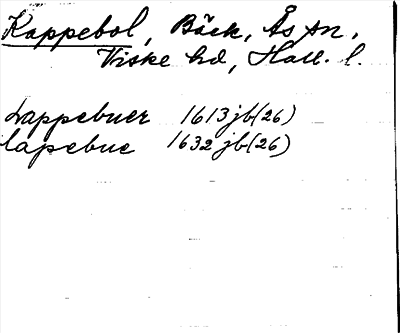 Kappebol, Bäck, Ås sn,
Viske hd, Hall. l.
Lappebuer 1613 jb (26)
lapebue 1632 jb (26)